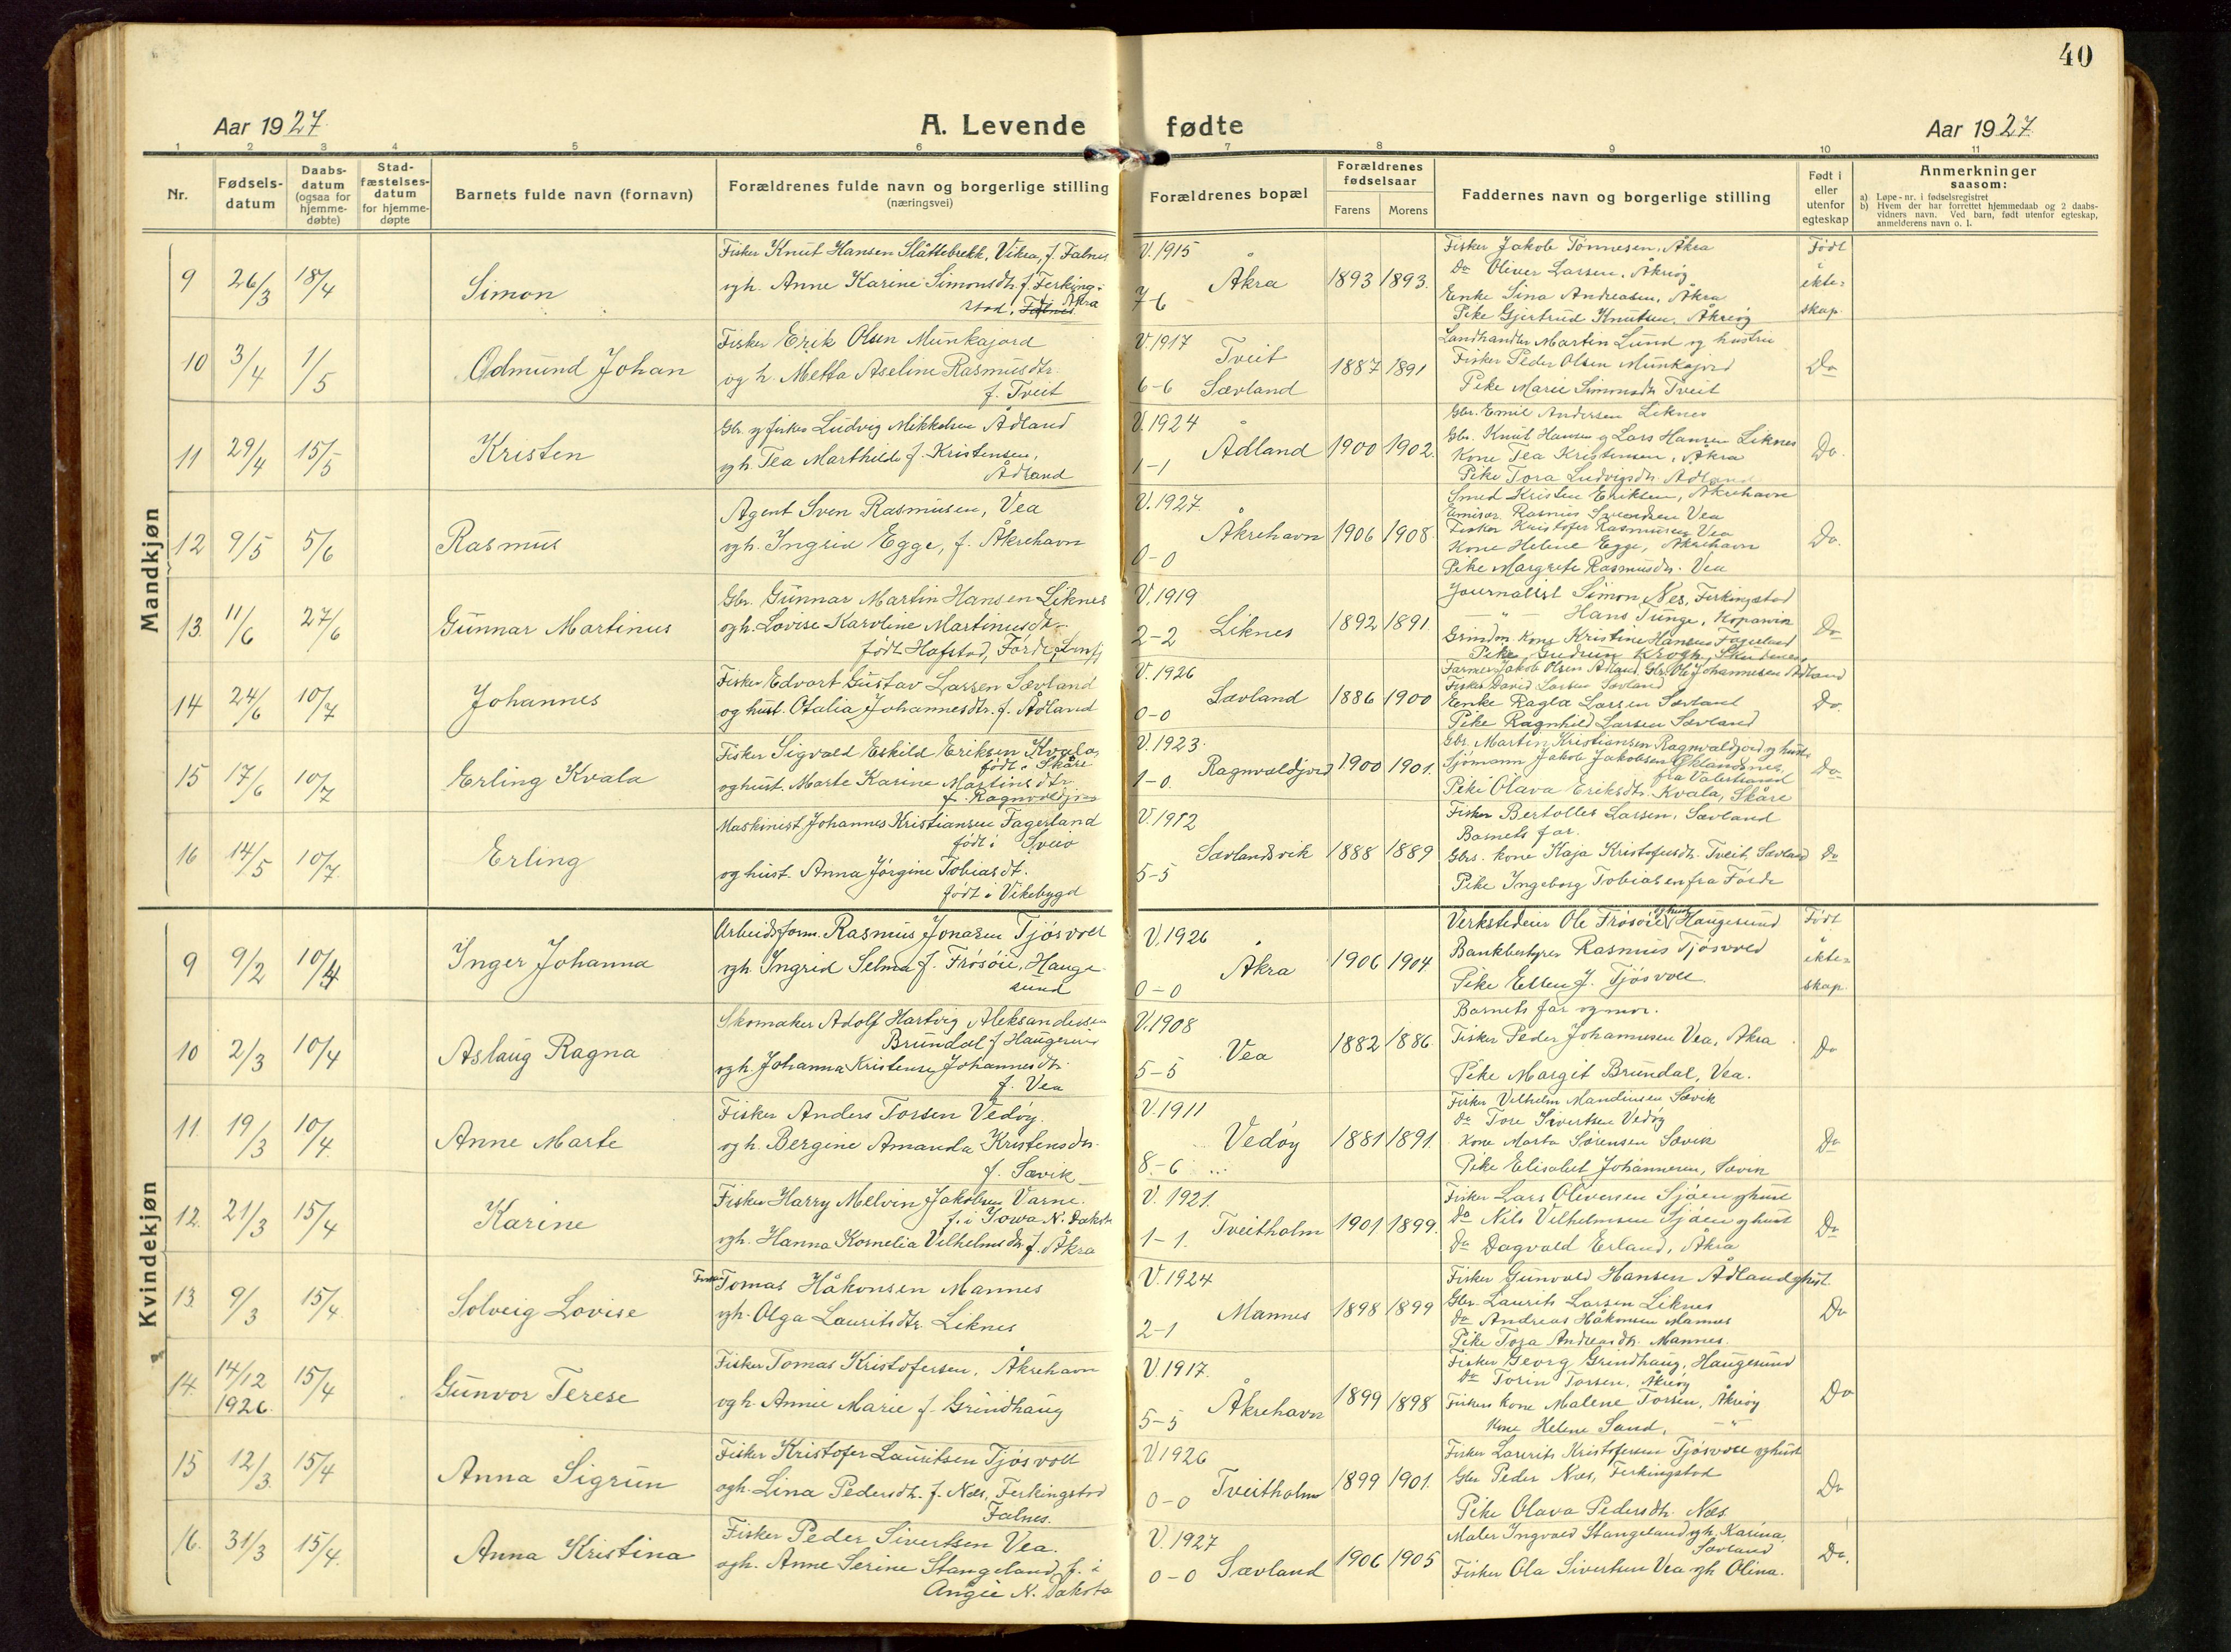 40
Aar 1927.
A. Levende fødte
Aar 1927.
1 2 3 4 5 6 7 8 9 10 11
Nr.
Fødsels-
datum
Daabs-
datum
(ogsaa for
hjemme-
døbte)
Stad-
fæstelses-
datum
for hjemme-
døpte
Barnets fulde navn (fornavn)
Forældrenes fulde navn og borgerlige stilling
(næringsvei)
Forældrenes bopæl
Forældrenes
fødselsaar
Farens Morens
Faddernes navn og borgerlige stilling
Født i
eller
utenfor
egteskap
Anmerkninger
saasom:
a) Løpe-nr. i fødselsregistret
b) Hvem der har forrettet hjemmedaab og 2 daabs-
vidners navn. Ved barn, født utenfor egteskap,
anmelderens navn o. l.
Mandkjøn
9 26/3 18/4 Simon
Fisker Knut Hansen Slåttebrekk, Vikra, f. Falnes
ogh. Anne Karine Simonsdtr. f. Ferking-
stad, Falnes Åkra
V. 1915
Åkra
7-6
1893 1893.
Fisker Jakob Tönnesen, Åkra
Do Oliver Larsen, Åkreög
Enke Sina Andreasen, Åkra
Pike Gjertrud Knutsen, Åkreög
Födt
i
ekte-
skap.
10 3/4 1/5 Odmund Johan
Fisker Erik Olsen Munkajord
og h. Metta Aseline Rasmusdtr.
f. Tveit
V. 1917
Tveit
6-6 Sævland
1887 1891
Landhandler Martin Lund og hustru
Fisker Peder Olsen Munkajord
Pike Marie Simonsdtr Tveit
Do
11 29/4 15/5 Kristen
Gbr. og fisker Ludvig Mikkelsen Ådland
ogh. Tea Marthilde f. Kristensen,
Ådland
V. 1924
Ådland
1-1
1900 1902.
Gbr. Emil Andersen Liknes
Gbr. Knut Hansen og Lars Hansen Liknes
Kone Tea Kristensen, Åkra
Pike Tora Ludvigsdtr. Ådland
Do.
12 9/5 5/6 Rasmus
Agent Sven Rasmusen, Vea
ogh. Ingrid Egge, f. Åkrehavn
V. 1927.
Åkrehavn
0-0
1906 1908.
Smed Kristen Eriksen, Åkrehavn
Emisær. Rasmus Svendsen Vea
Fisker Kristofer Rasmusen Vea
Kone Helene Egge, Åkrehavn
Pike Margrete Rasmusdtr. Vea
Do.
13. 11/6 27/6 Gunnar Martinus
Gbr. Gunnar Martin Hansen Liknes
ogh. Lovise Karoline Martinusdtr
födt Hafstad, Förde, Sunfj
V. 1919
2-2 Liknes
1892 1891.
Journalist Simon Nes, Ferkingstad
— " — Hans Tunge, Kopervik
Grindm. kone Kristine Hansen Fagerland
Pike Gudrun Krogh, Skudenes,
Do
14 24/6 10/7 Johannes
Fisker Edvart Gustav Larsen Sævland
og hust. Otalia Johannesdtr. f. Ådland
V. 1926
Sævland
0-0
1886 1900
Farmer Jakob Olsen Ådland, Gbr. Ole Johannesen Ådland
Fisker David Larsen Sævland
Enke Ragla Larsen Sævland
Pike Ragnhild Larsen Sævland
Do.
15 17/6 10/7 Erling Kvala
Fisker Sigvald Eskild Eriksen Kvala,
födt i Skåre
og hust. Marte Karine Martinsdtr.
f. Ragnvaldjord
V. 1923.
Ragnvaldjord
1-0.
1900 1901.
Gbr. Martin Kristiansen Ragnvaldjord og hustr
Sjömann Jakob Jakobsen
fra Valestrand
Pike Olava Eriksdtr. Kvala, Skåre
Do
16 14/5 10/7 Erling
Maskinist Johannes Kristiansen Fagerland
födt i Sveio
og hust. Anna Jörgine Tobiasdt.
födt i Vikebygd
V. 1912
Sævlandsvik
5-5
1888 1889
Fisker Bertolles Larsen, Sævland
Barnets far.
Gbrs. kone Kaja Kristofersdtr. Tveit, Sævland
Pike Ingeborg Tobiasen fra Förde
Do
Kvindekjøn
9 9/2 10/4 Inger Johanna
Arbeidsform. Rasmus Jonasen Tjösvoll
ogh. Ingrid Selma f. Frösöie, Hauge-
sund
V. 1926
Åkra
0-0
1906 1904
Verkstedeier Ole Frösöie og hust Haugesund
Bankbestyrer Rasmus Tjösvold
Pike Ellen J. Tjösvoll.
Födt
i
ekte-
skap.
10 2/3 10/4 Aslaug Ragna
Skomaker Adolf Hartvig Aleksandersen
Brundal f Haugesund
ogh. Johanna Kristense Johannesdtr.
f. Vea
V. 1908
Vea
5-5
1882 1886.
Barnets far og mor.
Fisker Peder Johannesen Vea, Åkra
Pike Margit Brundal, Vea.
Do
11. 19/3 10/4. Anne Marte
Fisker Anders Torsen Vedöy.
ogh. Bergine Amanda Kristensdtr.
f. Sævik
V. 1911
Vedöy
8-6
1881 1891.
Fisker Vilhelm Mandiusen Sævik
do Tore Sivertsen Vedöy
Kone Marta Sörensen Sævik
Pike Elisabet Johannesen, Sævik
Do
12. 21/3 15/4 Karine
Fisker Harry Melvin Jakobsen Varne.
f. i Iowa N. Dakota
ogh. Hanna Kornelia Vilhelmsdtr. f. Åkra
V. 1921.
Tveitholm
1-1.
1901 1899.
Fisker Lars Oliversen Sjöen og hust
Do Nils Vilhelmsen Sjöen og hust
Do Dagvald Erland, Åkra
Do
13. 9/3 15/4. Solveig Lovise
Fisker Tomas Håkonsen Mannes
ogh. Olga Lauritsdtr. Liknes
V. 1924
Mannes
2-1
1898 1899
Fisker Gunvald Hansen Ådland og hust.
Gbr. Laurits Larsen Liknes
Do Andreas Håkonsen Mannes
Pike Tora Andreasdtr. Mannes.
Do
14. 14/12 1926. 15/4 Gunvor Terese
Fisker Tomas Kristofersen, Åkrehavn
ogh. Annie Marie f. Grindhaug
V 1917.
Åkrehavn
5-5
1899 1898
Fisker Georg Grindhaug, Haugesund
Do Torin Torsen, Åkreög
Fiskers kone Malene Torsen, Åkreög
Kone Helene Sand, — " —
Do
15 12/3. 15/4 Anna Sigrun
Fisker Kristofer Lauritsen Tjösvoll
ogh. Lina Pedersdtr. f. Næs, Ferkingstad
Falnes.
V 1926
Tveitholm
0-0
1899 1901.
Fisker Laurits Kristofersen Tjösvoll og hust
Gbr Peder Næs, Ferkingstad
Pike Olava Pedersdtr. Næs.
Do
16. 31/3 15/4. Anna Kristina
Fisker Peder Sivertsen Vea.
ogh. Anne Serine Stangeland f. i
Angie N. Dakota
V. 1927
0-0 Sævland
1906 1905
Maler Ingvald Stangeland og h. Karina,
Sævland
Fisker Ola Sivertsen Vea og h. Olina.
Do.